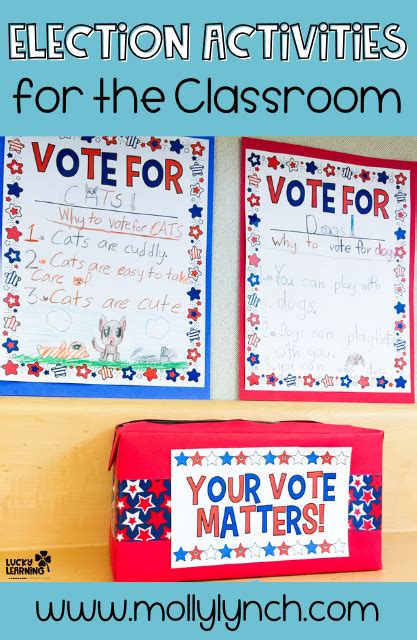 ELECTION ACTIVITIES
for the Classroom
VOTE FOR
CATS!
Why to vote for CATS
1. Cats are cuddly.
2. Cats are easy to take
care of.
3. Cats are cute.
VOTE FOR
Dogs!
Why to vote for dogs
You can play with
dogs.
2. Dogs can play
with you.
YOUR VOTE
MATTERS!
LUCKY
LEARNING
www.mollylynch.com